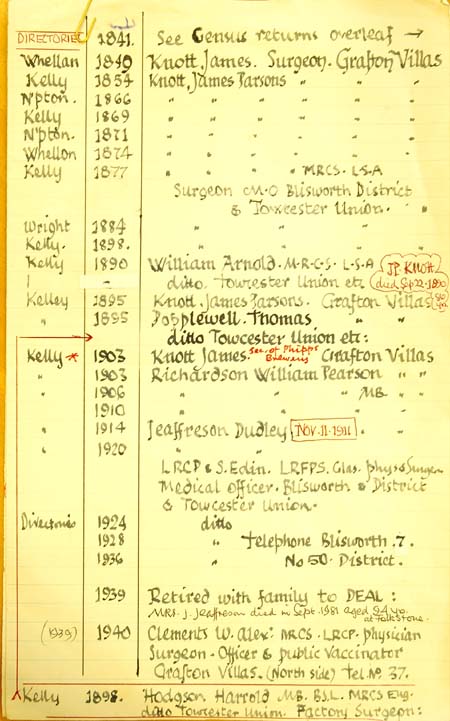 DIRECTORIES 1841. See Census returns overleaf →
Whellan 1840 Knott, James. Surgeon. Grafton Villas
Kelly 1854 Knott, James Parsons " " "
N'pton. 1866 " " " " " "
Kelly 1869 " " " " " "
N'pton. 1871 " " " " " "
Whellon 1874 " " " " " "
Kelly 1877 " " " " MRCS. L.S.A
Surgeon M.O Blisworth District
& Towcester Union. " "
Wright 1884 " " "
Kelly. 1898. " " "
Kelly 1890 William Arnold. M.R.C.S. L.S.A
J.P. KNOTT
died Sep 22. 1890
ditto. Towcester Union etc
Kelley 1895 Knott, James Parsons. Grafton Villas
" 1895 Popplewell. Thomas
ditto Towcester Union etc:
Kelly * 1903 Knott James. Sec. of Phipps Brewery Grafton Villas
" 1903 Richardson William Pearson " "
" 1906 " " MB. " "
" 1910 " " "
" 1914 Jeaffreson Dudley NOV. 11. 1911 . "
" 1920 " "
LRCP & S. Edin. LRFPS. Glas. phys & Surgeon
Medical Officer. Blisworth & District
& Towcester Union.
Directories 1924 ditto
1928 " Telephone Blisworth . 7.
1936 " No 50. District.
1939 Retired with family to DEAL :
MRS. J. Jeaffreson died in Sept. 1981 aged 94 yo.
at Folkstone.
(1939) 1940 Clements W. Alexr. MRCS . LRCP. physician
Surgeon. Officer & public vaccinator
Grafton Villas. (North side) Tel. No 37.
Kelly 1898. Hodgson Harrold MB. BS.L. MRCS Eng.
ditto Towcester Union. Factory Surgeon: